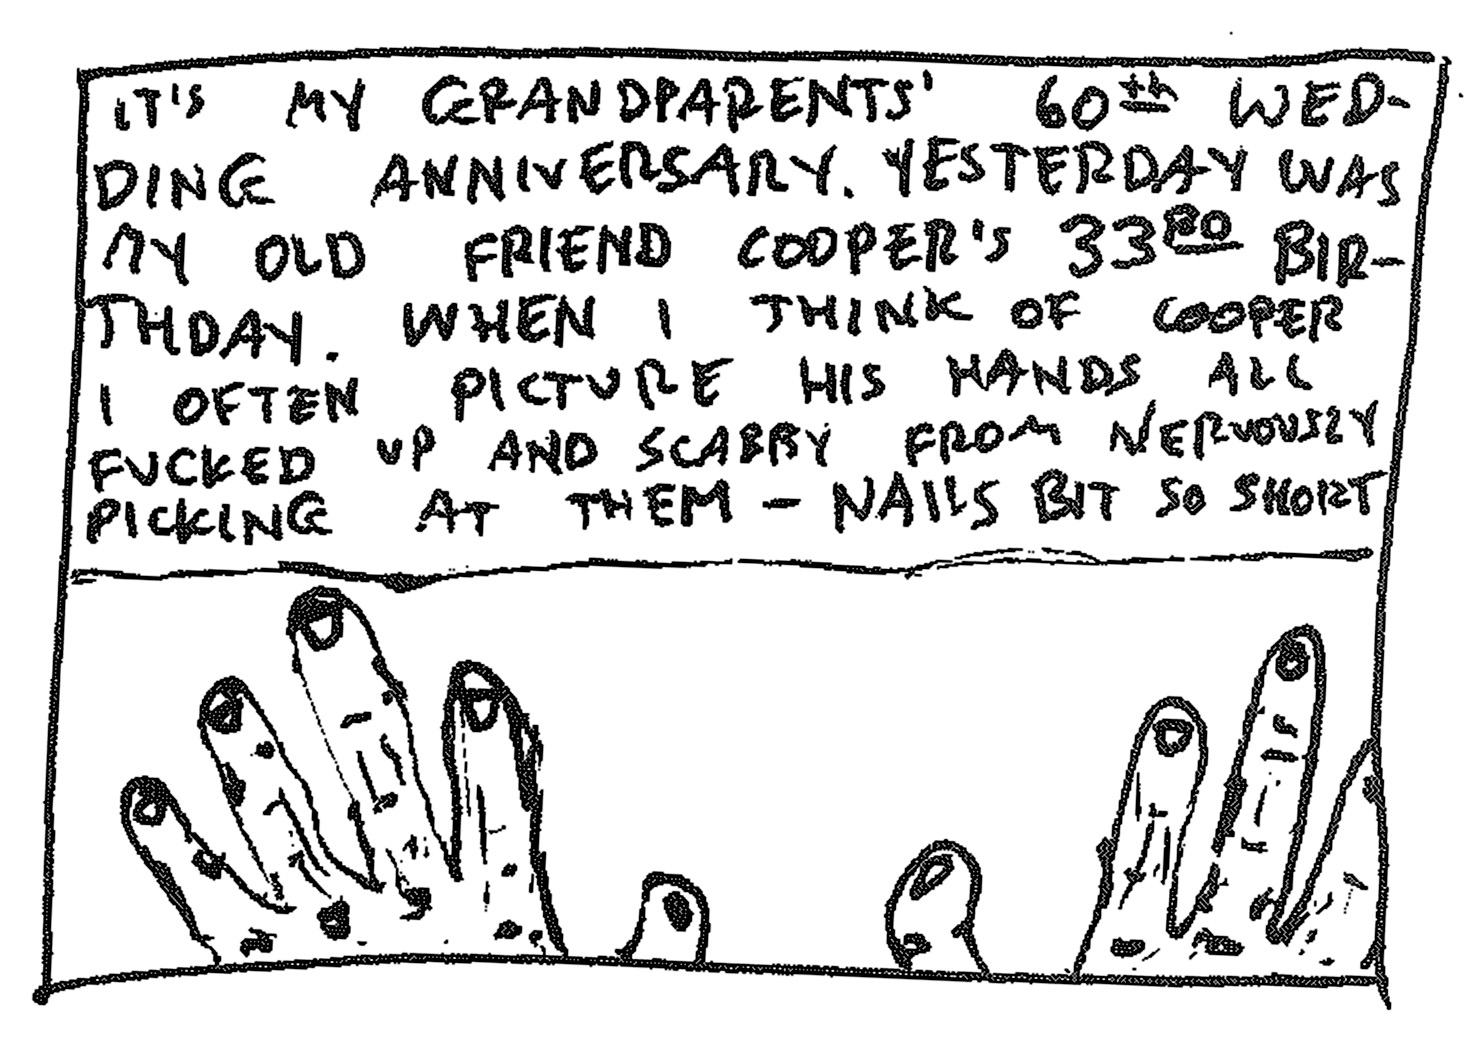 IT'S MY GRANDPARENTS' 60th WED-
DING ANNIVERSARY. YESTERDAY WAS
MY OLD FRIEND COOPER'S 33RD BIR-
THDAY. WHEN I THINK OF COOPER
I OFTEN PICTURE HIS HANDS ALL
FUCKED UP AND SCABBY FROM NERVOUSLY
PICKING AT THEM - NAILS BIT SO SHORT